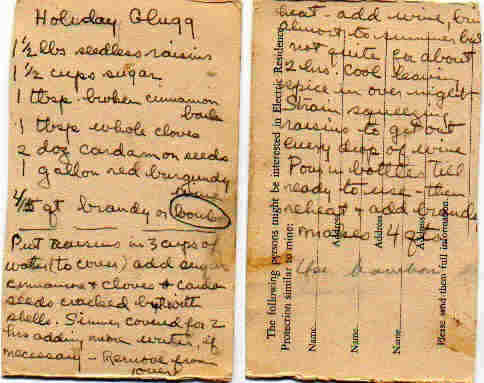 Holiday Glugg
1 ½ lbs seedless raisins
1 ½ cups sugar
1 tbsp broken cinnamon
bark
1 tbsp whole cloves
2 doz cardamon seeds
1 gallon red burgundy
wine
4/5 qt brandy or bourbon
Put raisins in 3 cups of
water (to cover) add sugar
cinnamon & cloves & cardamon
seeds cracked but with
shells. Simmer covered for 2
hrs adding more water, if
necessary – Remove from
heat – add wine, bring
almost to simmer, but
not quite for about
2 hrs. Cool leaving
spice in over night
Strain squeezing
raisins to get out
every drop of wine
Pour in bottles till
ready to use – then
reheat & add brandy
makes 4 qts
Use bourbon
The following persons might be interested in Electric Residence
Protection similar to mine:
Name
Address
Name
Address
Name
Address
Please send them full information.